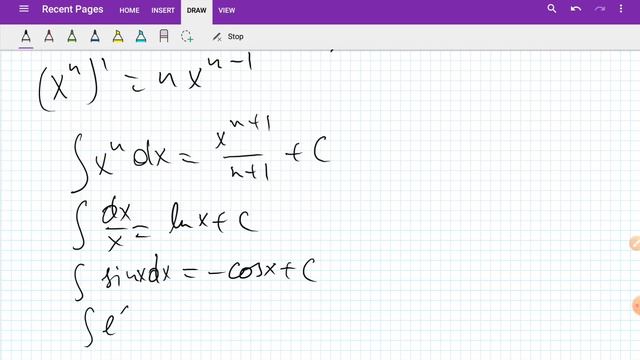 Recent Pages HOME INSERT DRAW VIEW
Stop
(x^n)' = n x^{n-1}
∫ x^n dx = x^{n+1}/(n+1) + C
∫ dx/x = ln x + C
∫ sinx dx = -cosx + C
∫ e